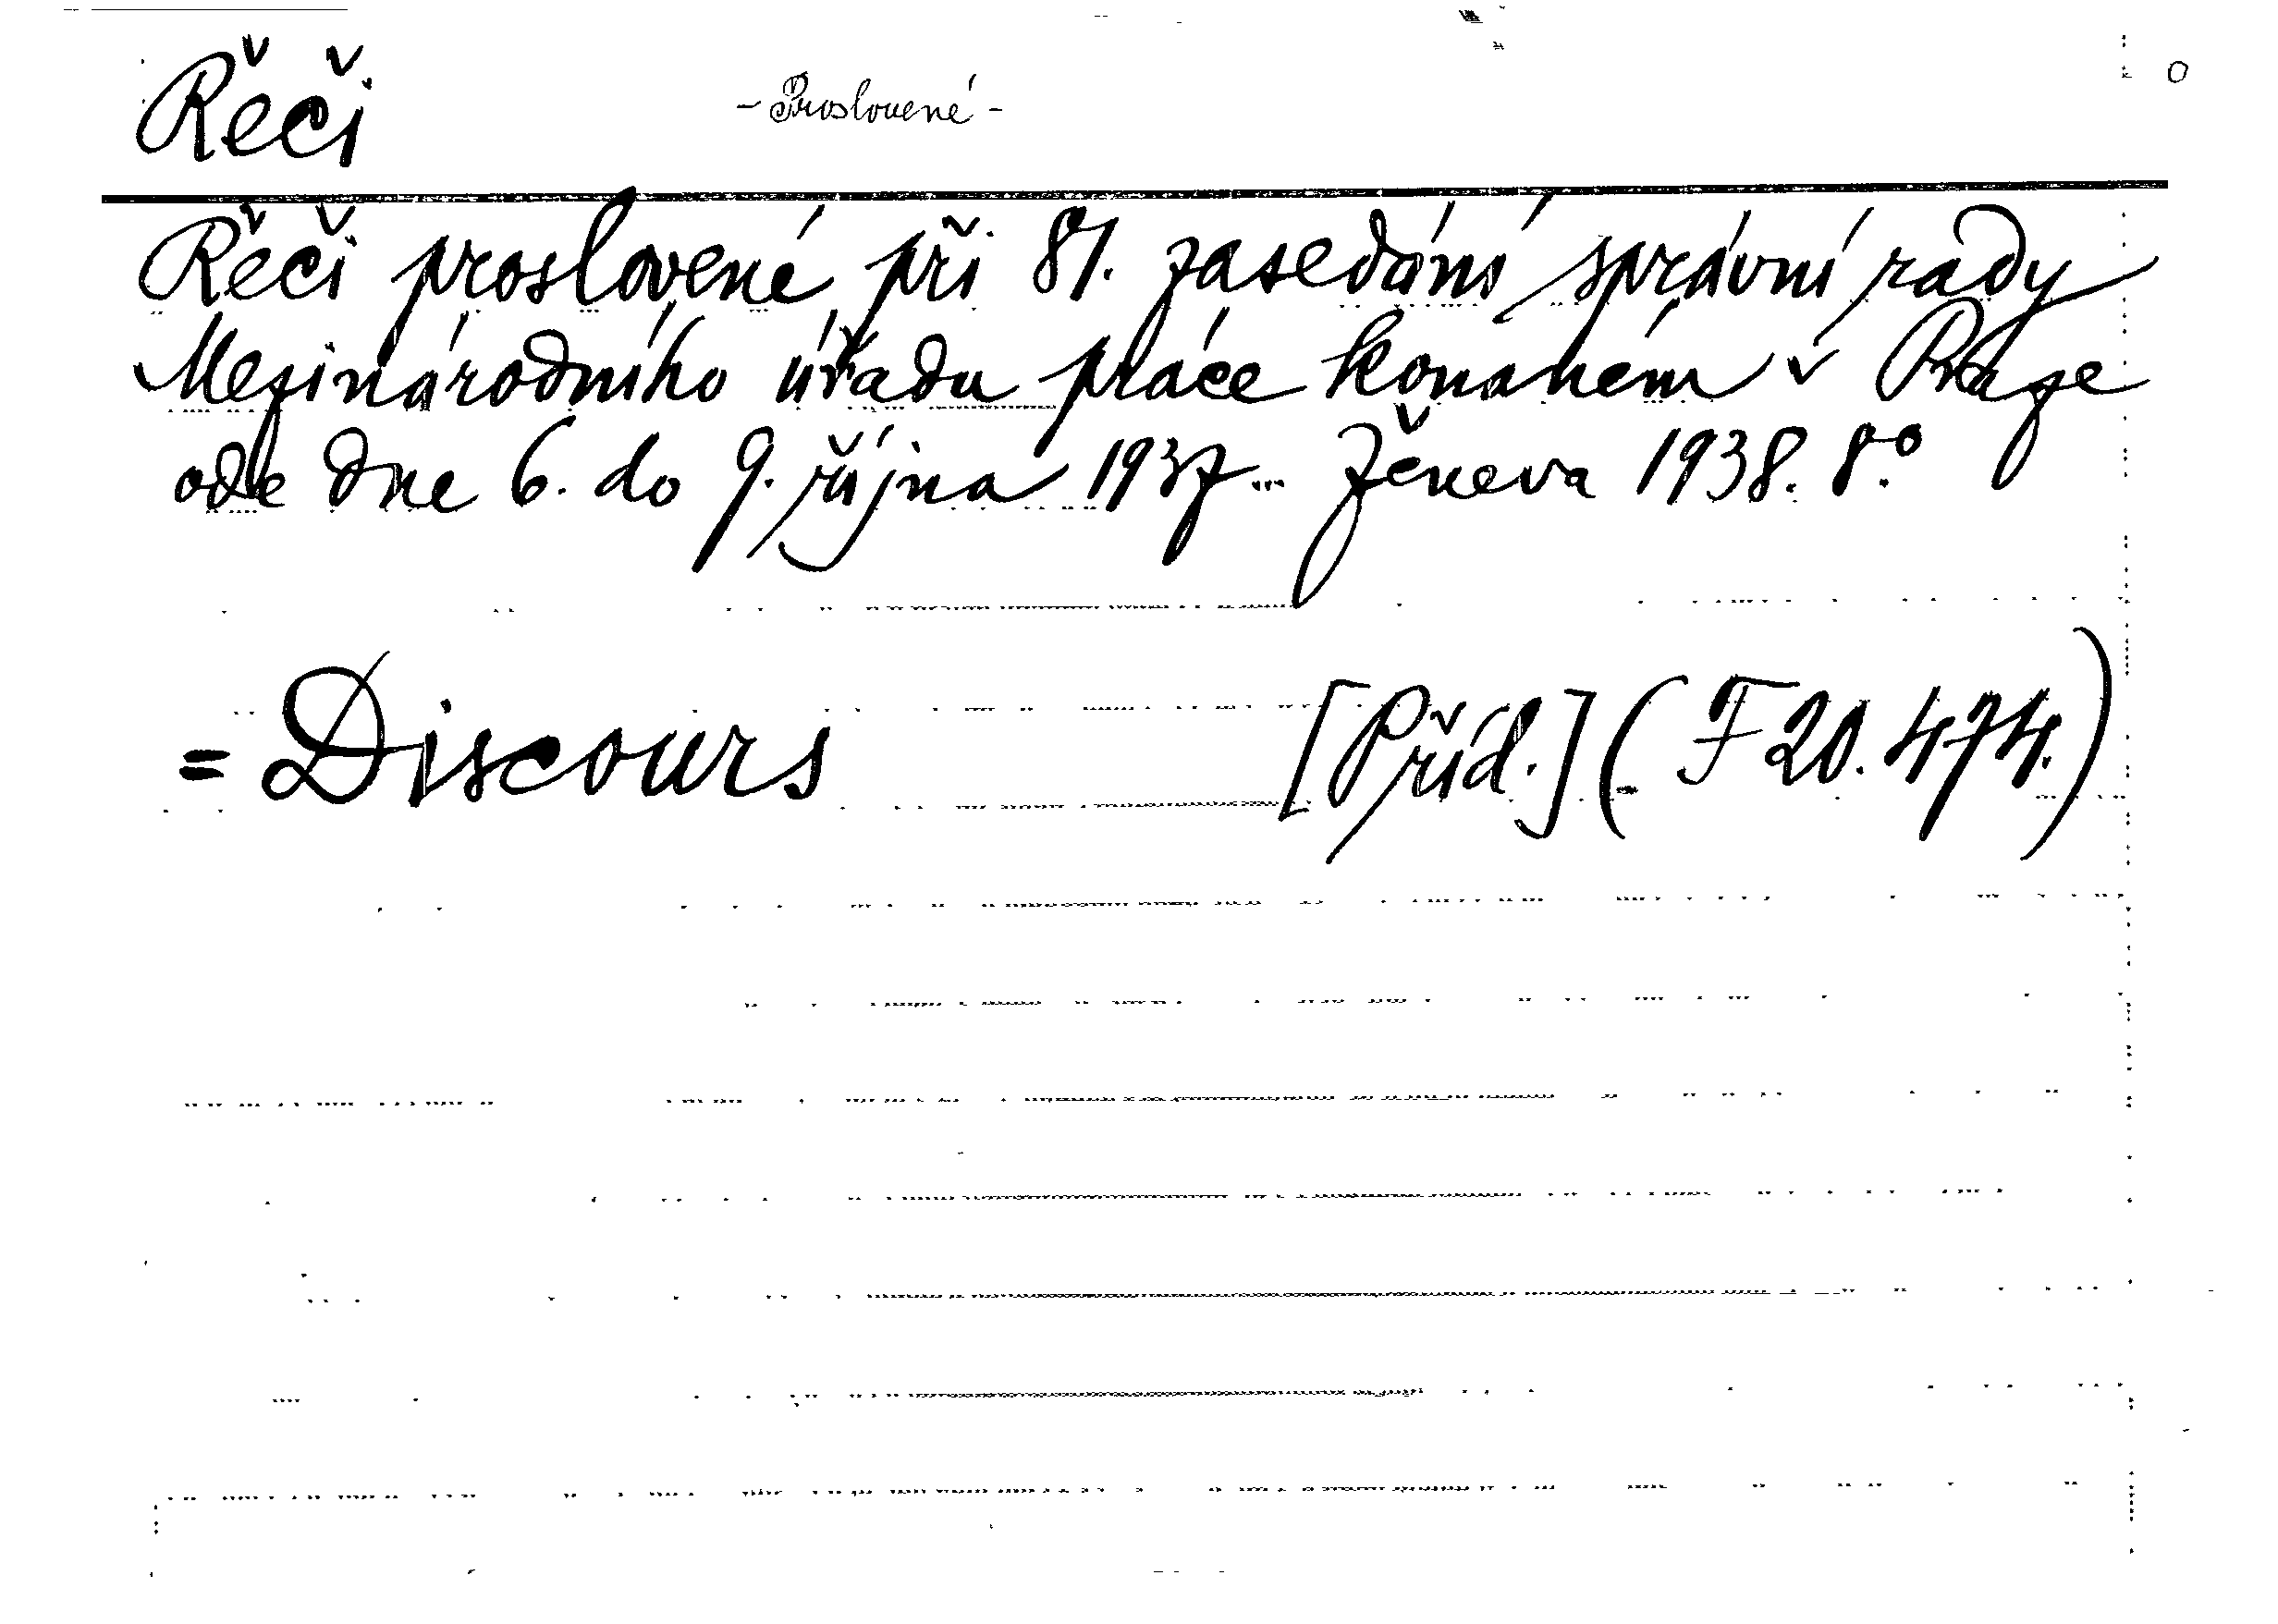 Řeči - Proslovené - o
Řeči proslovené při 81. zasedání správní rady
Mezinárodního úřadu práce konaném v Praze
ode dne 6. do 9. října 1937... Ženeva 1938. 8.°
= Discours [Příd.] (F 20.474.)